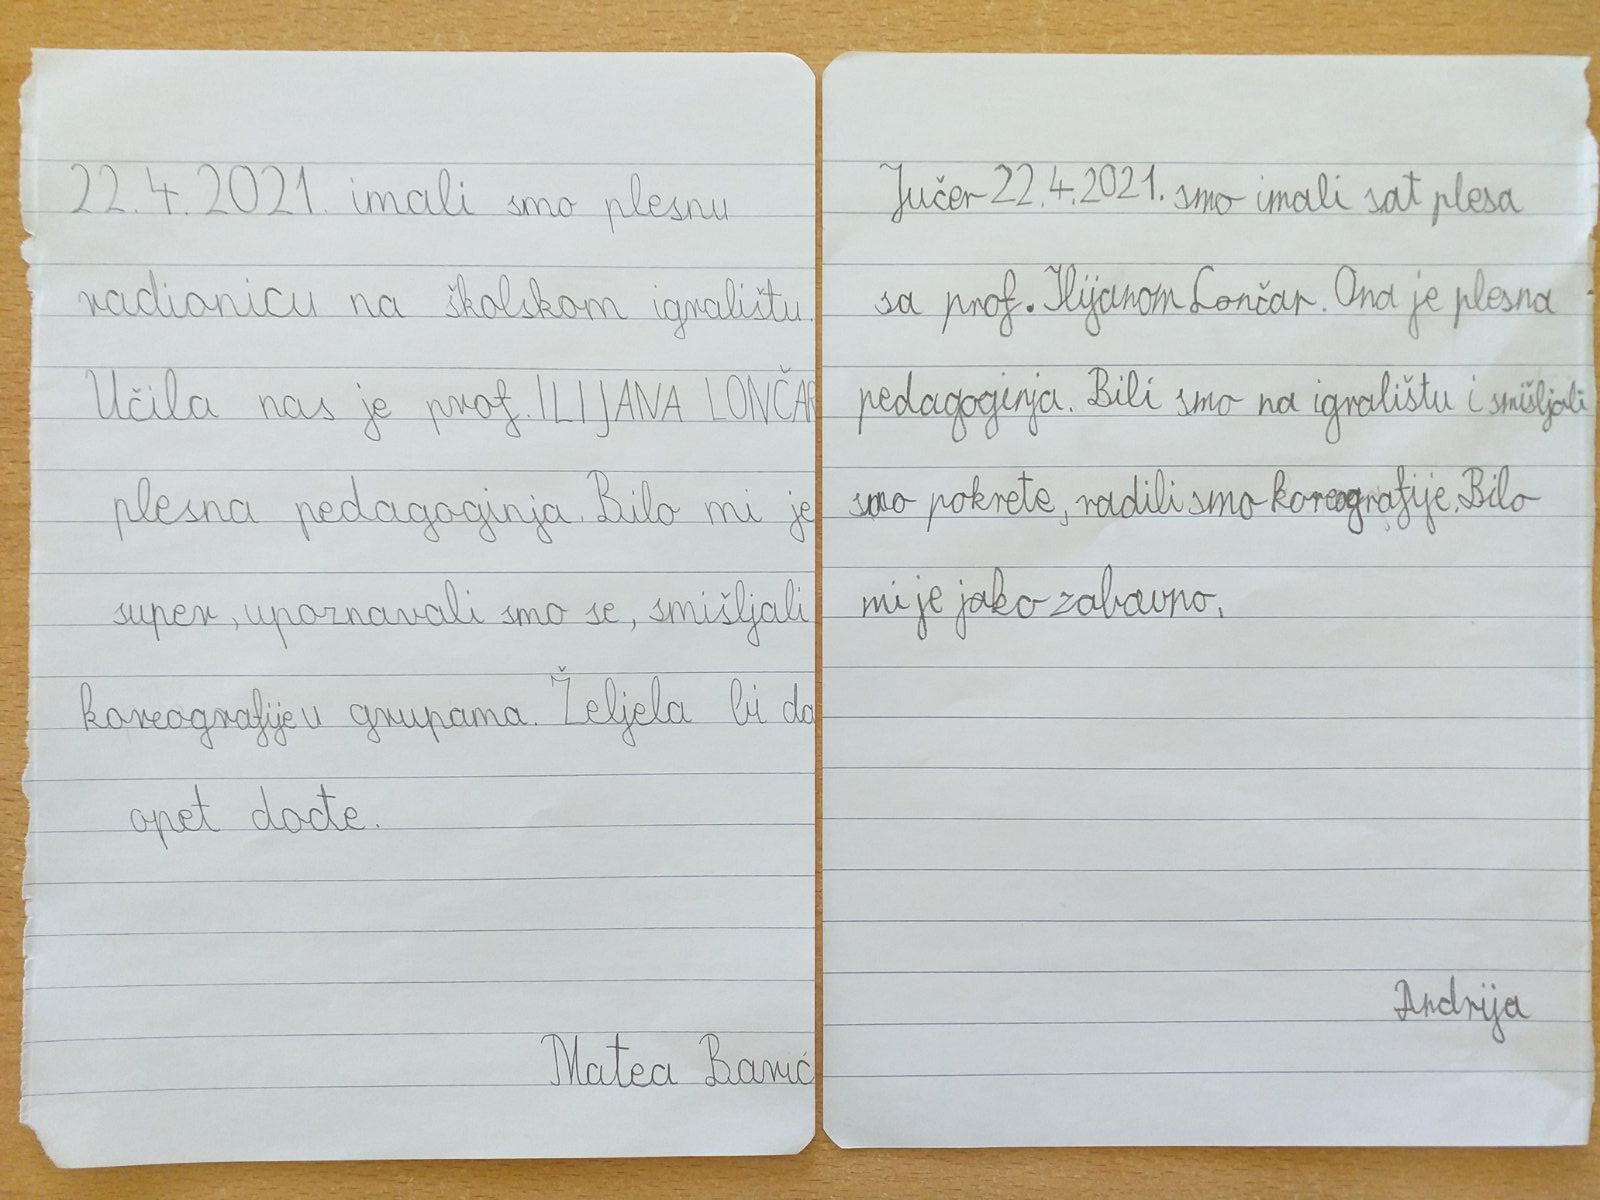 22.4.2021. imali smo plesnu
radionicu na školskom igralištu.
Učila nas je prof. ILIJANA LONČAR
plesna pedagoginja. Bilo mi je
super, upoznavali smo se, smišljali
koreografije u grupama. Željela bi da
opet dođe.
Matea Banić
Jučer 22.4.2021. smo imali sat plesa
sa prof. Ilijanom Lončar. Ona je plesna
pedagoginja. Bili smo na igralištu i smišljali
smo pokrete, radili smo koreografije. Bilo
mi je jako zabavno.
Andrija